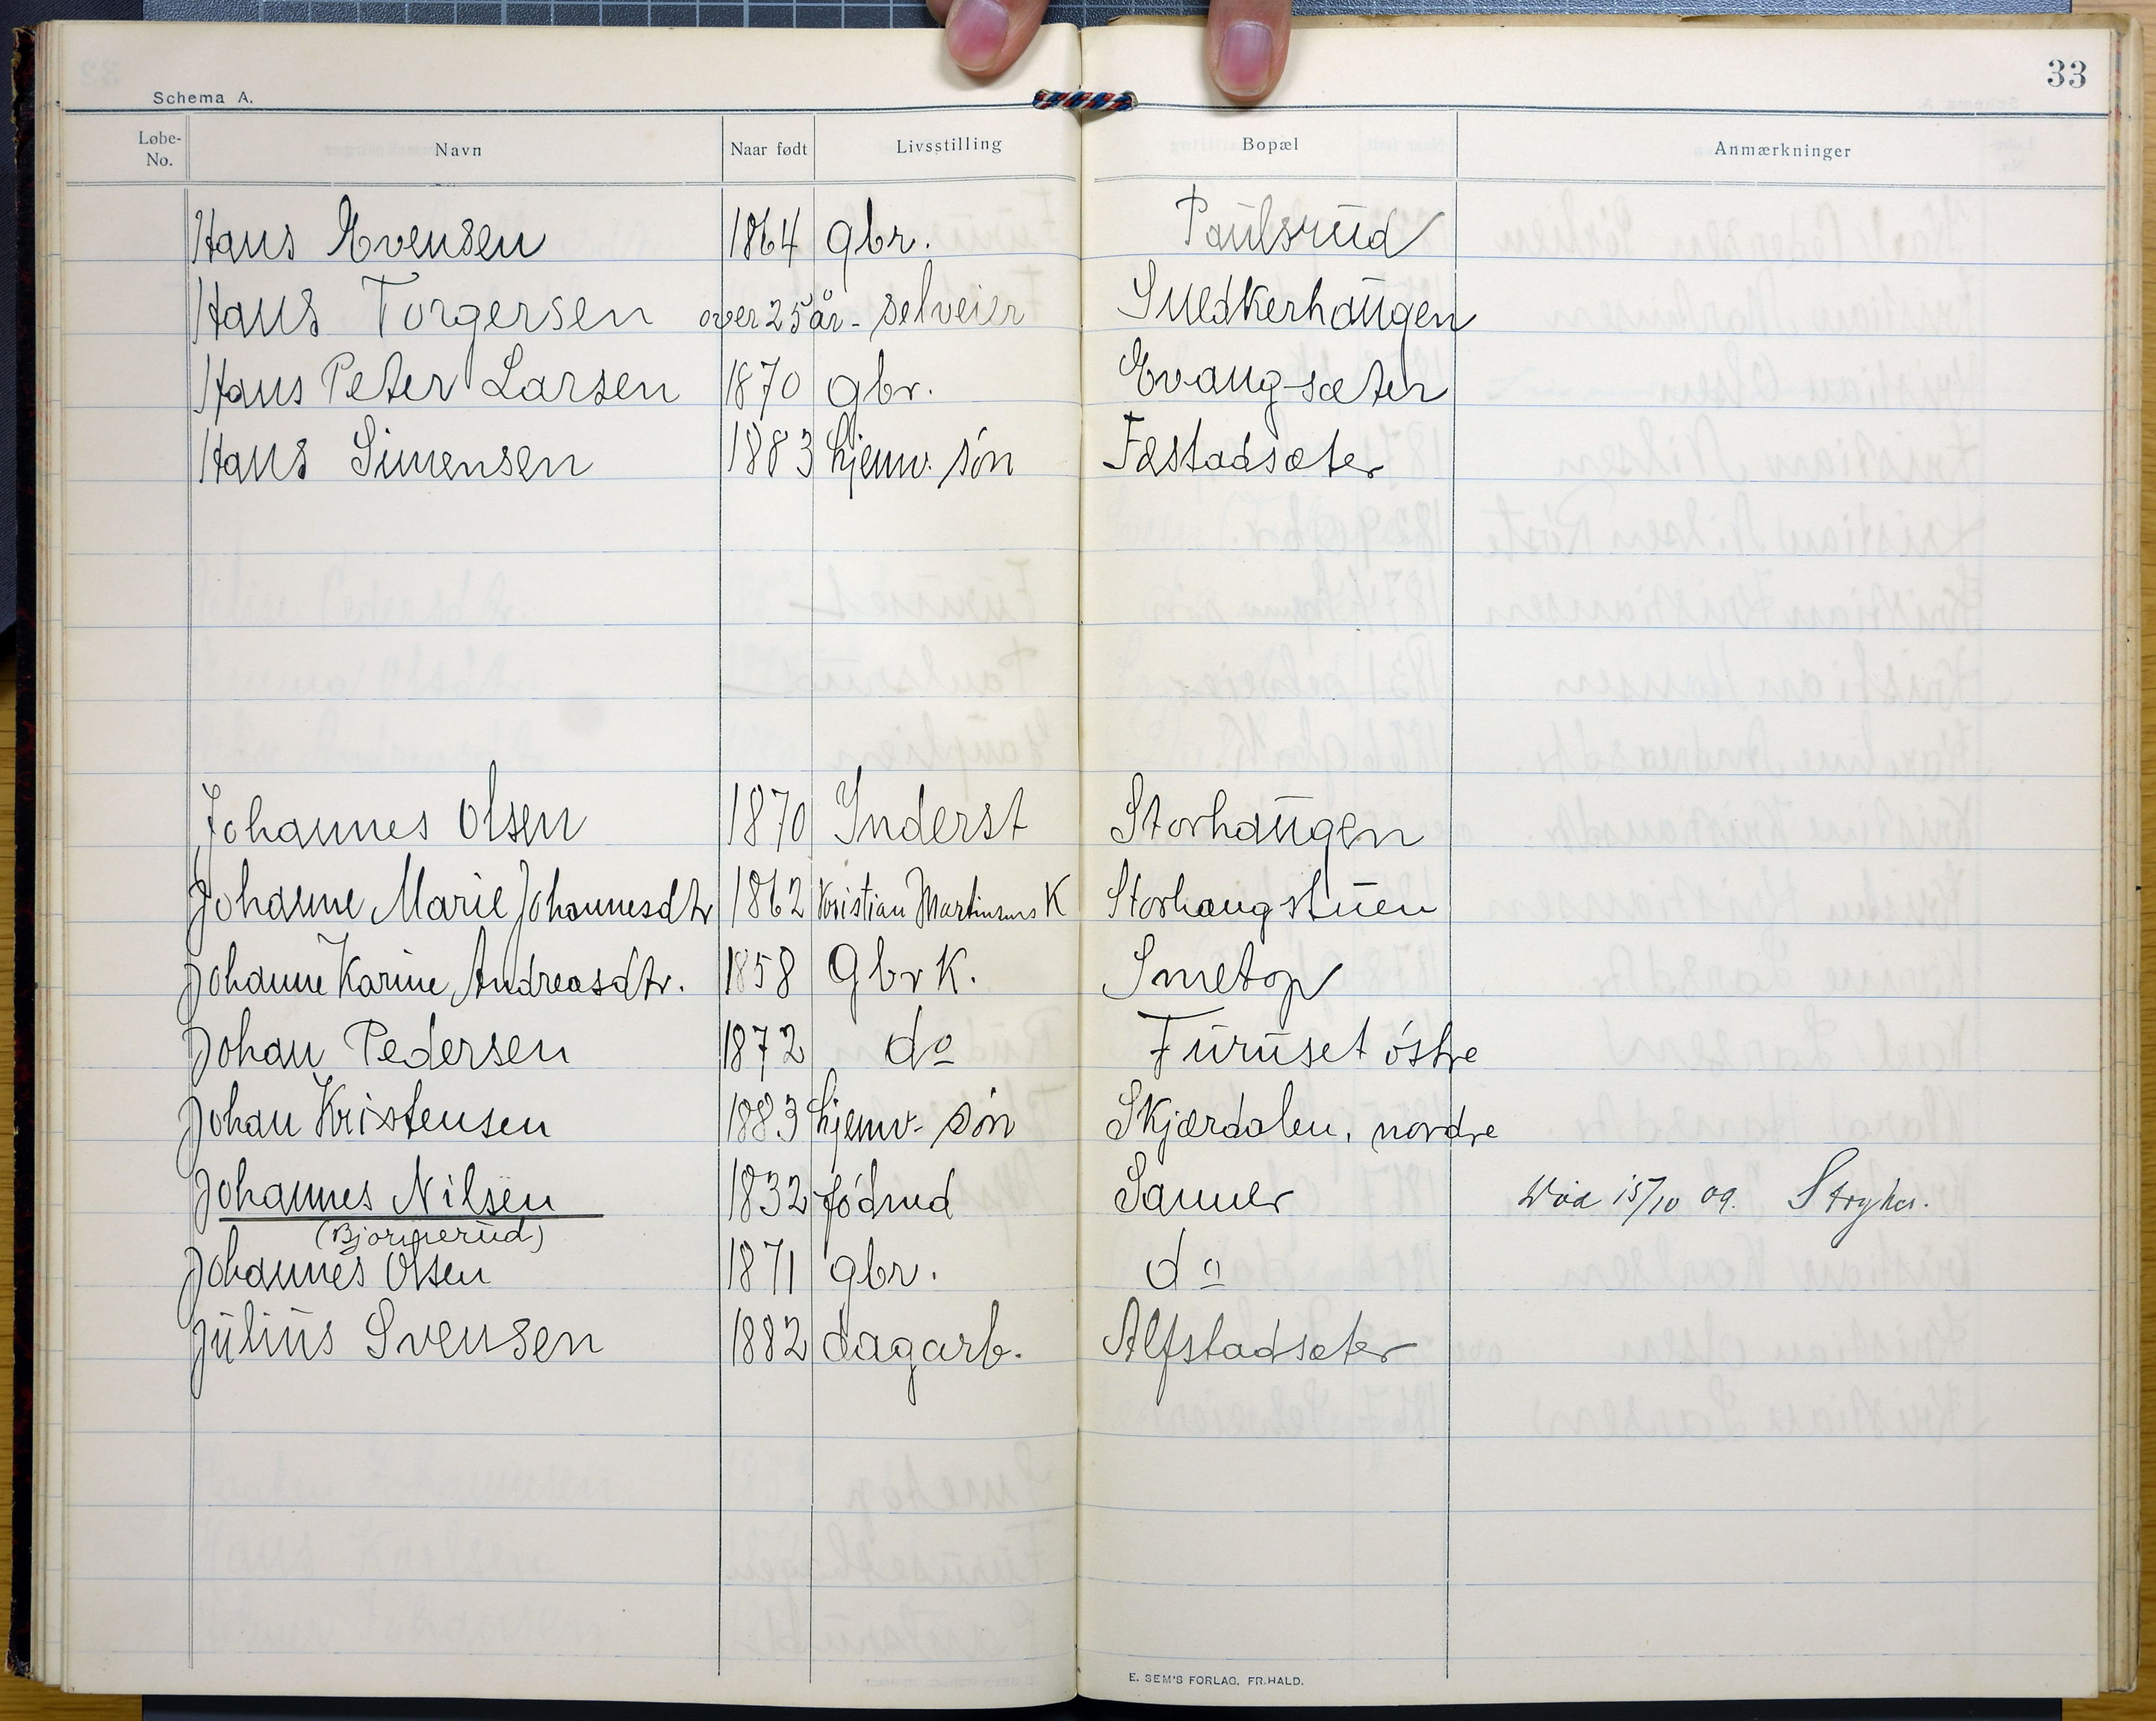 33
Schema A.
Løbe-No. Navn Naar født Livsstilling Bopæl Anmærkninger
Hans Evensen 1864 gbr. Paulsrud
Hans Torgersen over 25 år - selveier Snedkerhaugen
Hans Peter Larsen 1870 gbr. Evang-sæter
Hans Simensen 1883 hjemv. søn Fæstadsæter
Johannes Olsen 1870 Inderst Storhaugen
Johanne Marie Johannesdtr 1862 Kristian Martinsens K Storhaugstuen
Johanne Karine Andreasdtr. 1858 Gbr K. Smetop
Johan Pedersen 1872 do Furuset østre
Johan Kristensen 1883 hjemv. søn Skjærdalen, nordre
Johannes Nilsen 1832 föderåd Sanner Død 15/10 09. Stryker.
(Bjørnerud)
Johannes Olsen 1871 gbr. do
Julius Svensen 1882 dagarb. Alfstadsæter
E. SEM'S FORLAG, FR.HALD.